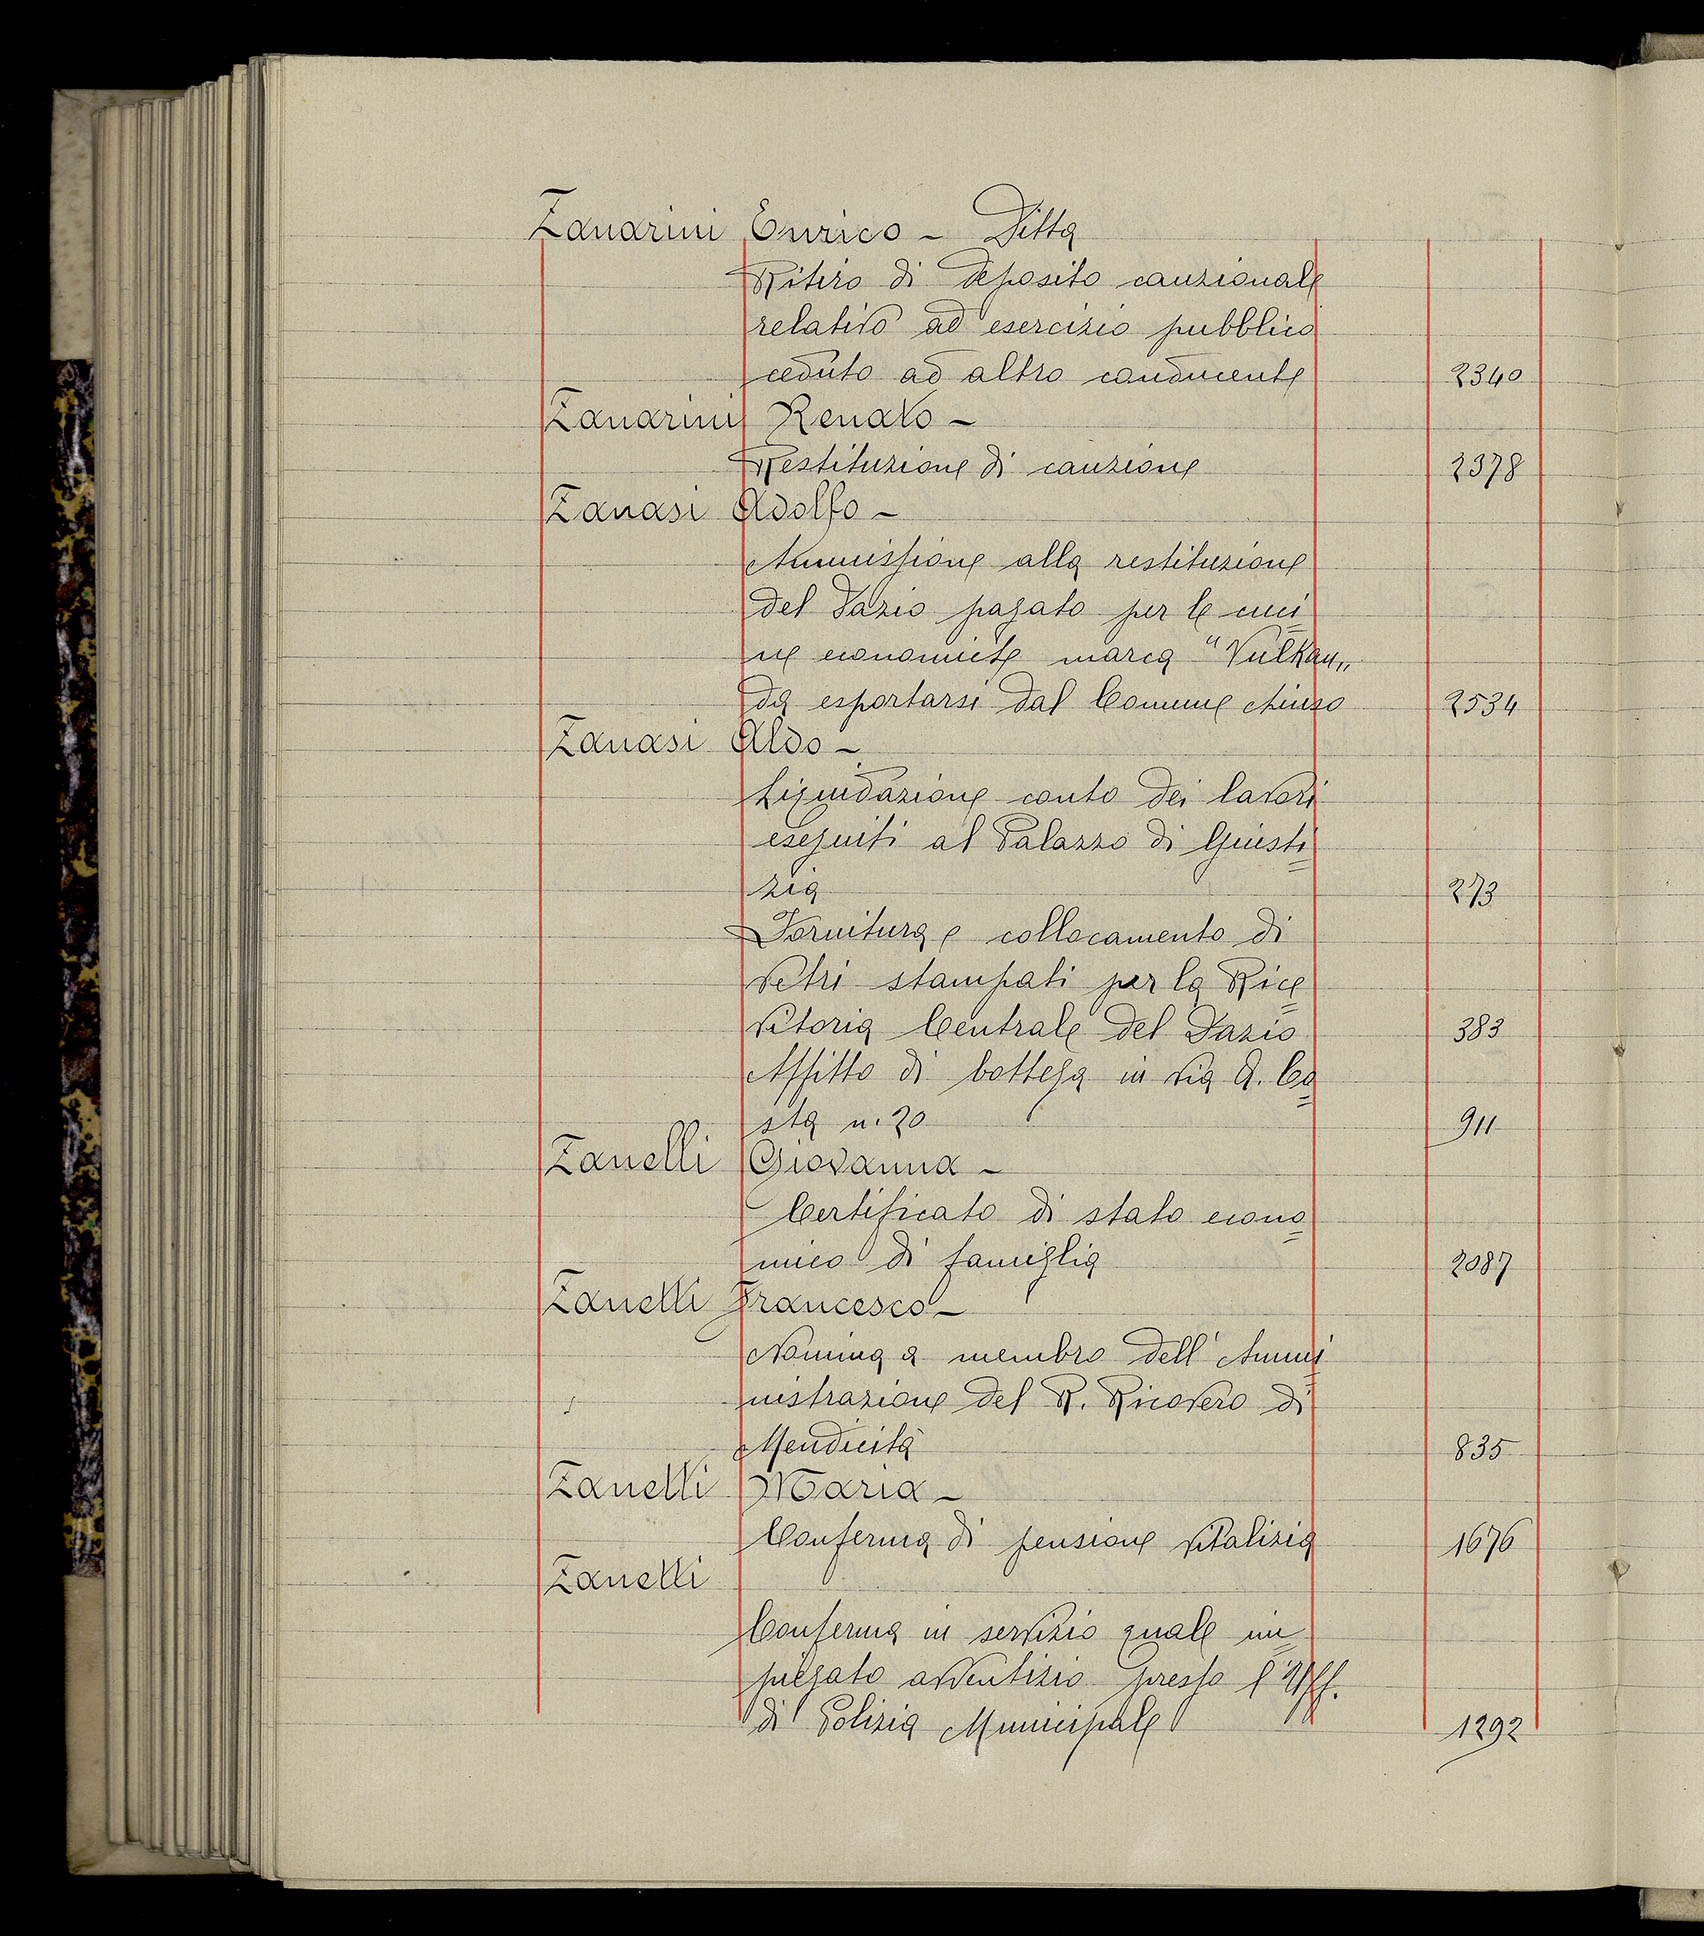 Zanarini Enrico - Ditta
Ritiro di deposito cauzionale
relativo ad esercizio pubblico
ceduto ad altro conducente 2340
Zanarini Renato -
Restituzione di cauzione 2378
Zanasi Adolfo -
Ammissione alla restituzione
del Dazio pagato per le cuci=
ne economiche marca "Vulkan„
da esportarsi dal Comune chiuso 2534
Zanasi Aldo -
Liquidazione conto dei lavori
eseguiti al Palazzo di Giusti=
zia 273
Fornitura e collocamento di
vetri stampati per la Rice=
vitoria Centrale del Dazio 383
Affitto di bottega in via A. Co=
sta n. 20 911
Zanelli Giovanna -
Certificato di stato econo=
mico di famiglia 2087
Zanetti Francesco -
Nomina a membro dell'Ammi=
nistrazione del R. Ricovero di
Mendicità 835
Zanetti Maria -
Conferma di pensione vitalizia 1676
Zanetti
Conferma in servizio quale im=
piegato avventizio presso l'Uff.
di Polizia Municipale 1292